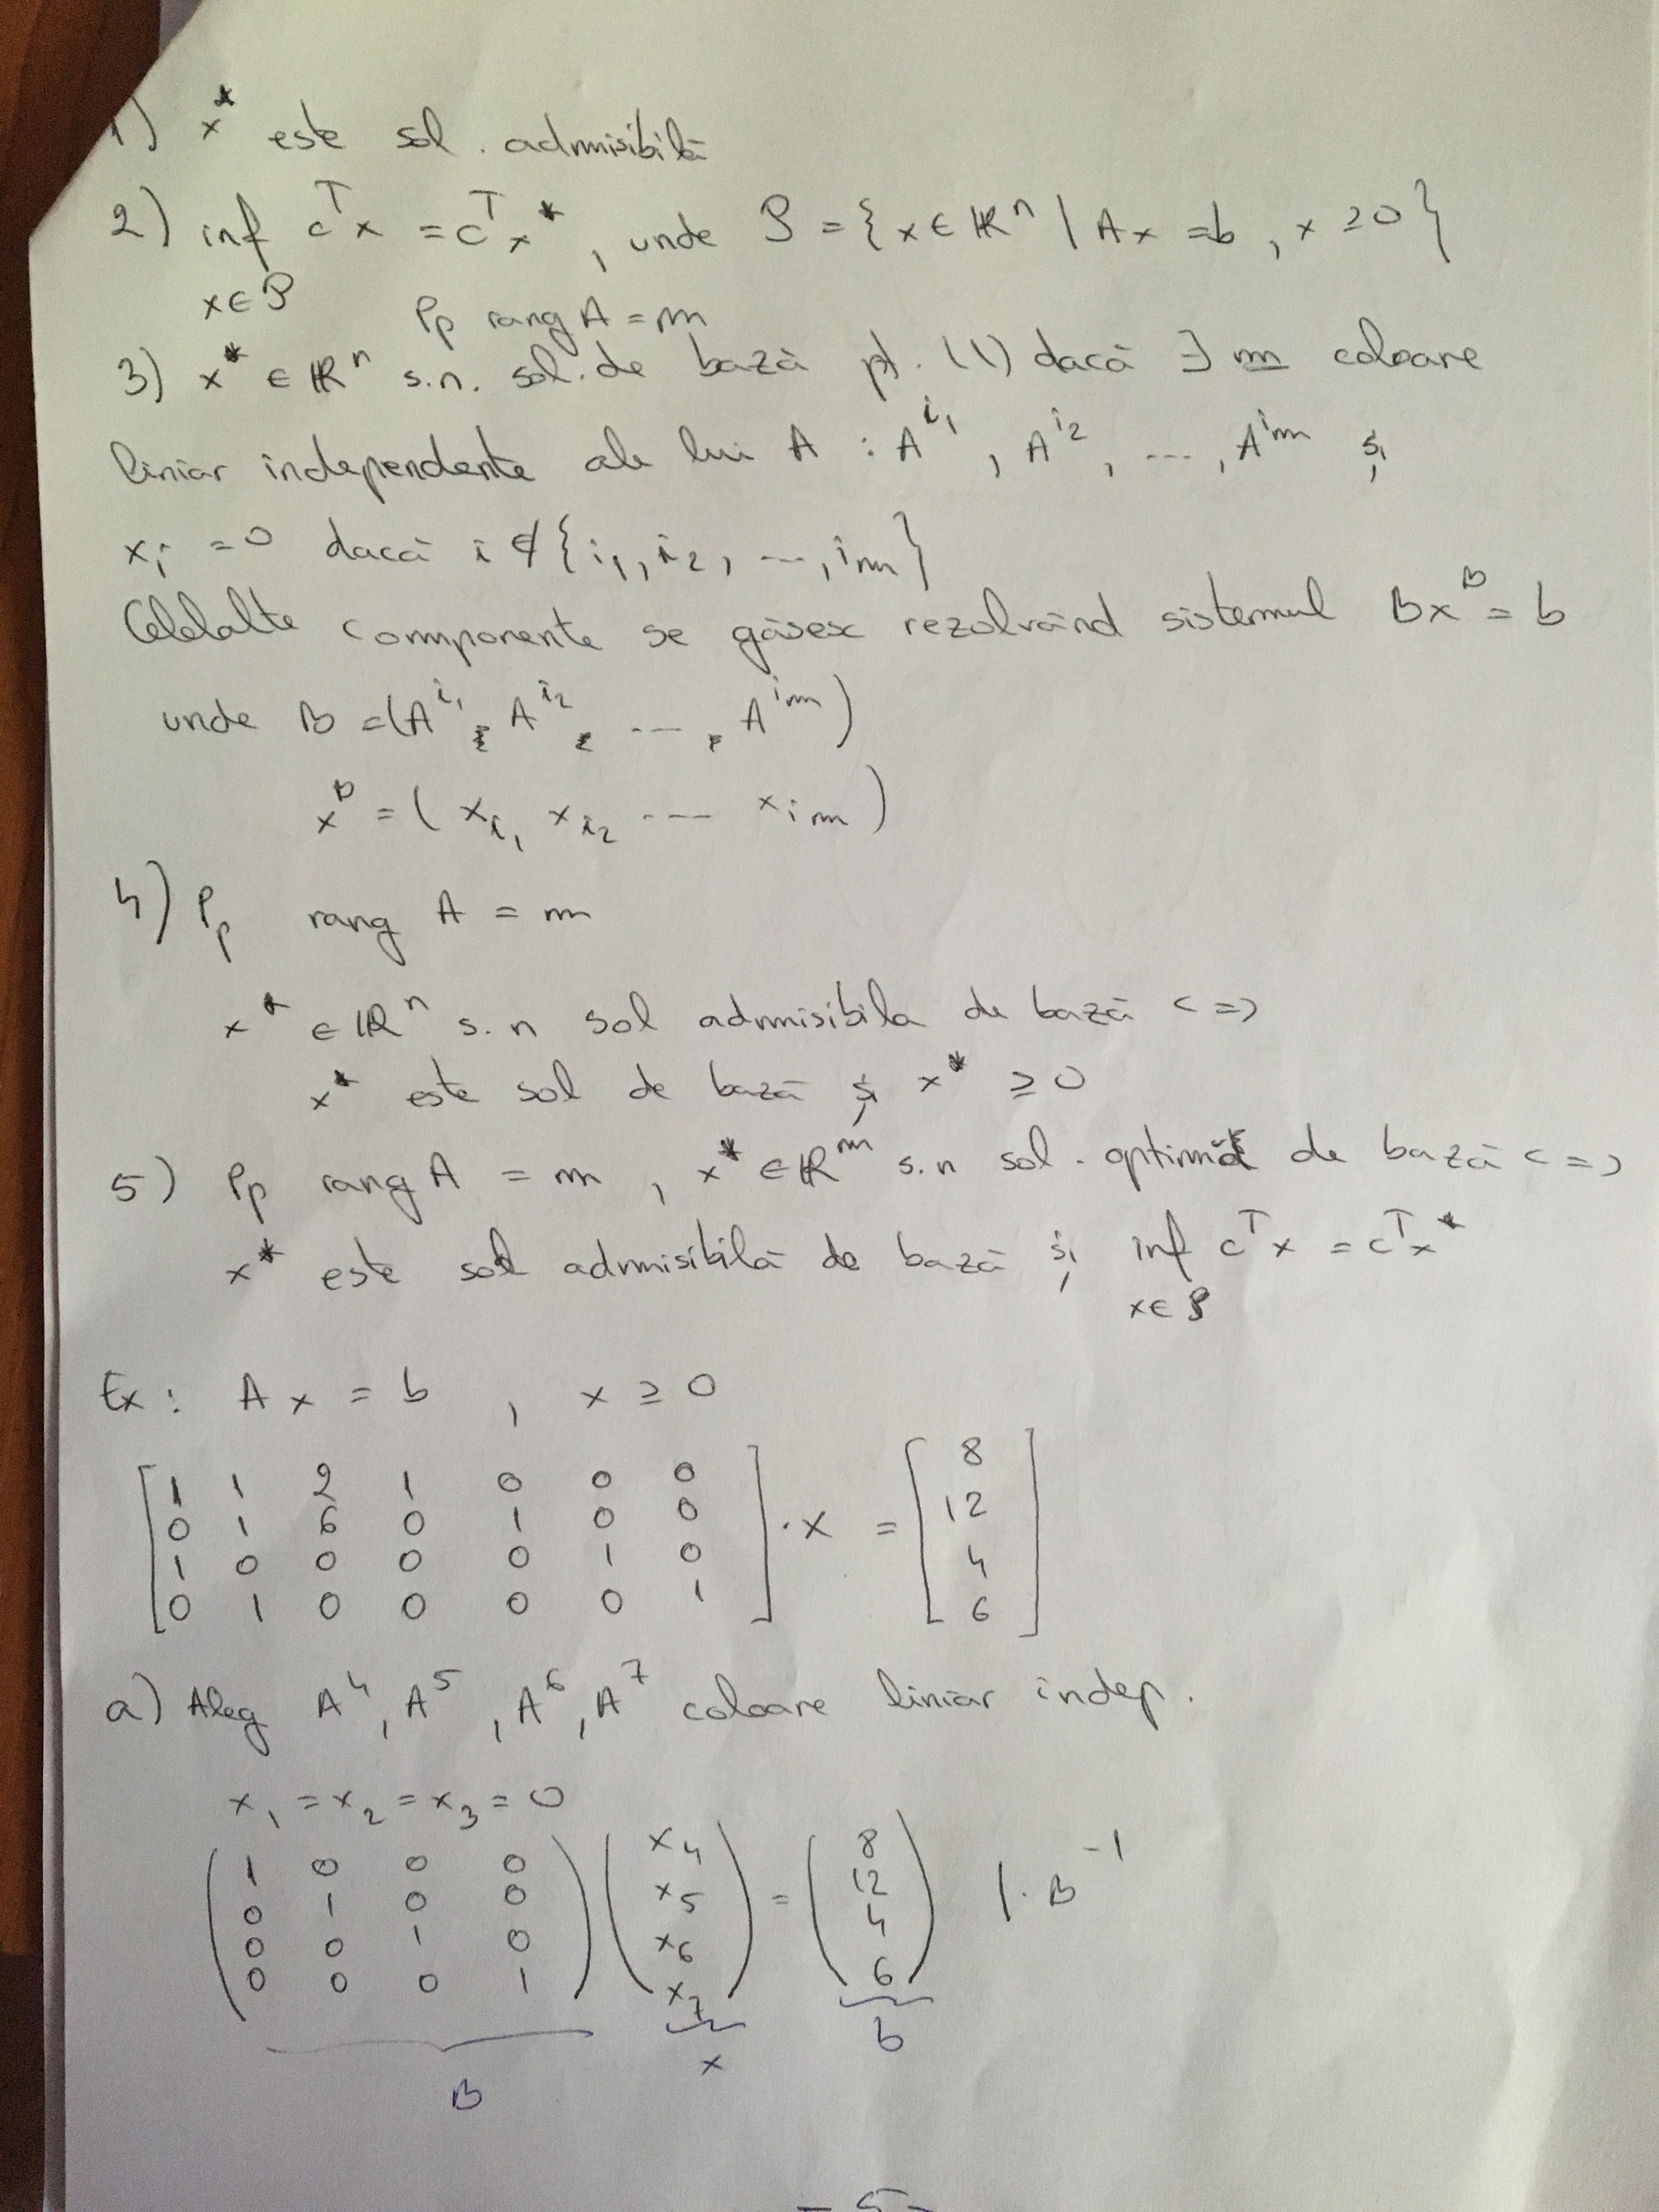 1) x* este sol. admisibilă
2) inf cᵀx = cᵀx*, unde P = {x ∈ ℝⁿ | Ax = b, x ≥ 0}
x∈P
Pp rang A = m
3) x* ∈ ℝⁿ s.n. sol. de bază pt. (1) dacă ∃ m coloane
liniar independente ale lui A : A^{i₁}, A^{i₂}, ..., A^{im} și
xᵢ = 0 dacă i ∉ {i₁, i₂, ..., im}
Celelalte componente se găsesc rezolvând sistemul Bx^B = b
unde B = (A^{i₁}, A^{i₂}, ..., A^{im})
x^B = (x_{i₁} x_{i₂} ... x_{im})
4) Pp rang A = m
x* ∈ ℝⁿ s.n sol admisibila de bază <=>
x* este sol de bază și x* ≥ 0
5) Pp rang A = m, x* ∈ ℝᵐ s.n sol. optimă de bază <=>
x* este sol admisibilă de bază și inf cᵀx = cᵀx*
x∈P
Ex: Ax = b, x ≥ 0
[1 1 2 1 0 0 0] [8]
[0 1 6 0 1 0 0] · x = [12]
[1 0 0 0 0 1 0] [4]
[0 1 0 0 0 0 1] [6]
a) Aleg A⁴, A⁵, A⁶, A⁷ coloane liniar indep.
x₁ = x₂ = x₃ = 0
(1 0 0 0) (x₄) (8)
(0 1 0 0) (x₅) = (12) | · B⁻¹
(0 0 1 0) (x₆) (4)
(0 0 0 1) (x₇) (6)
B x b
- 5 -